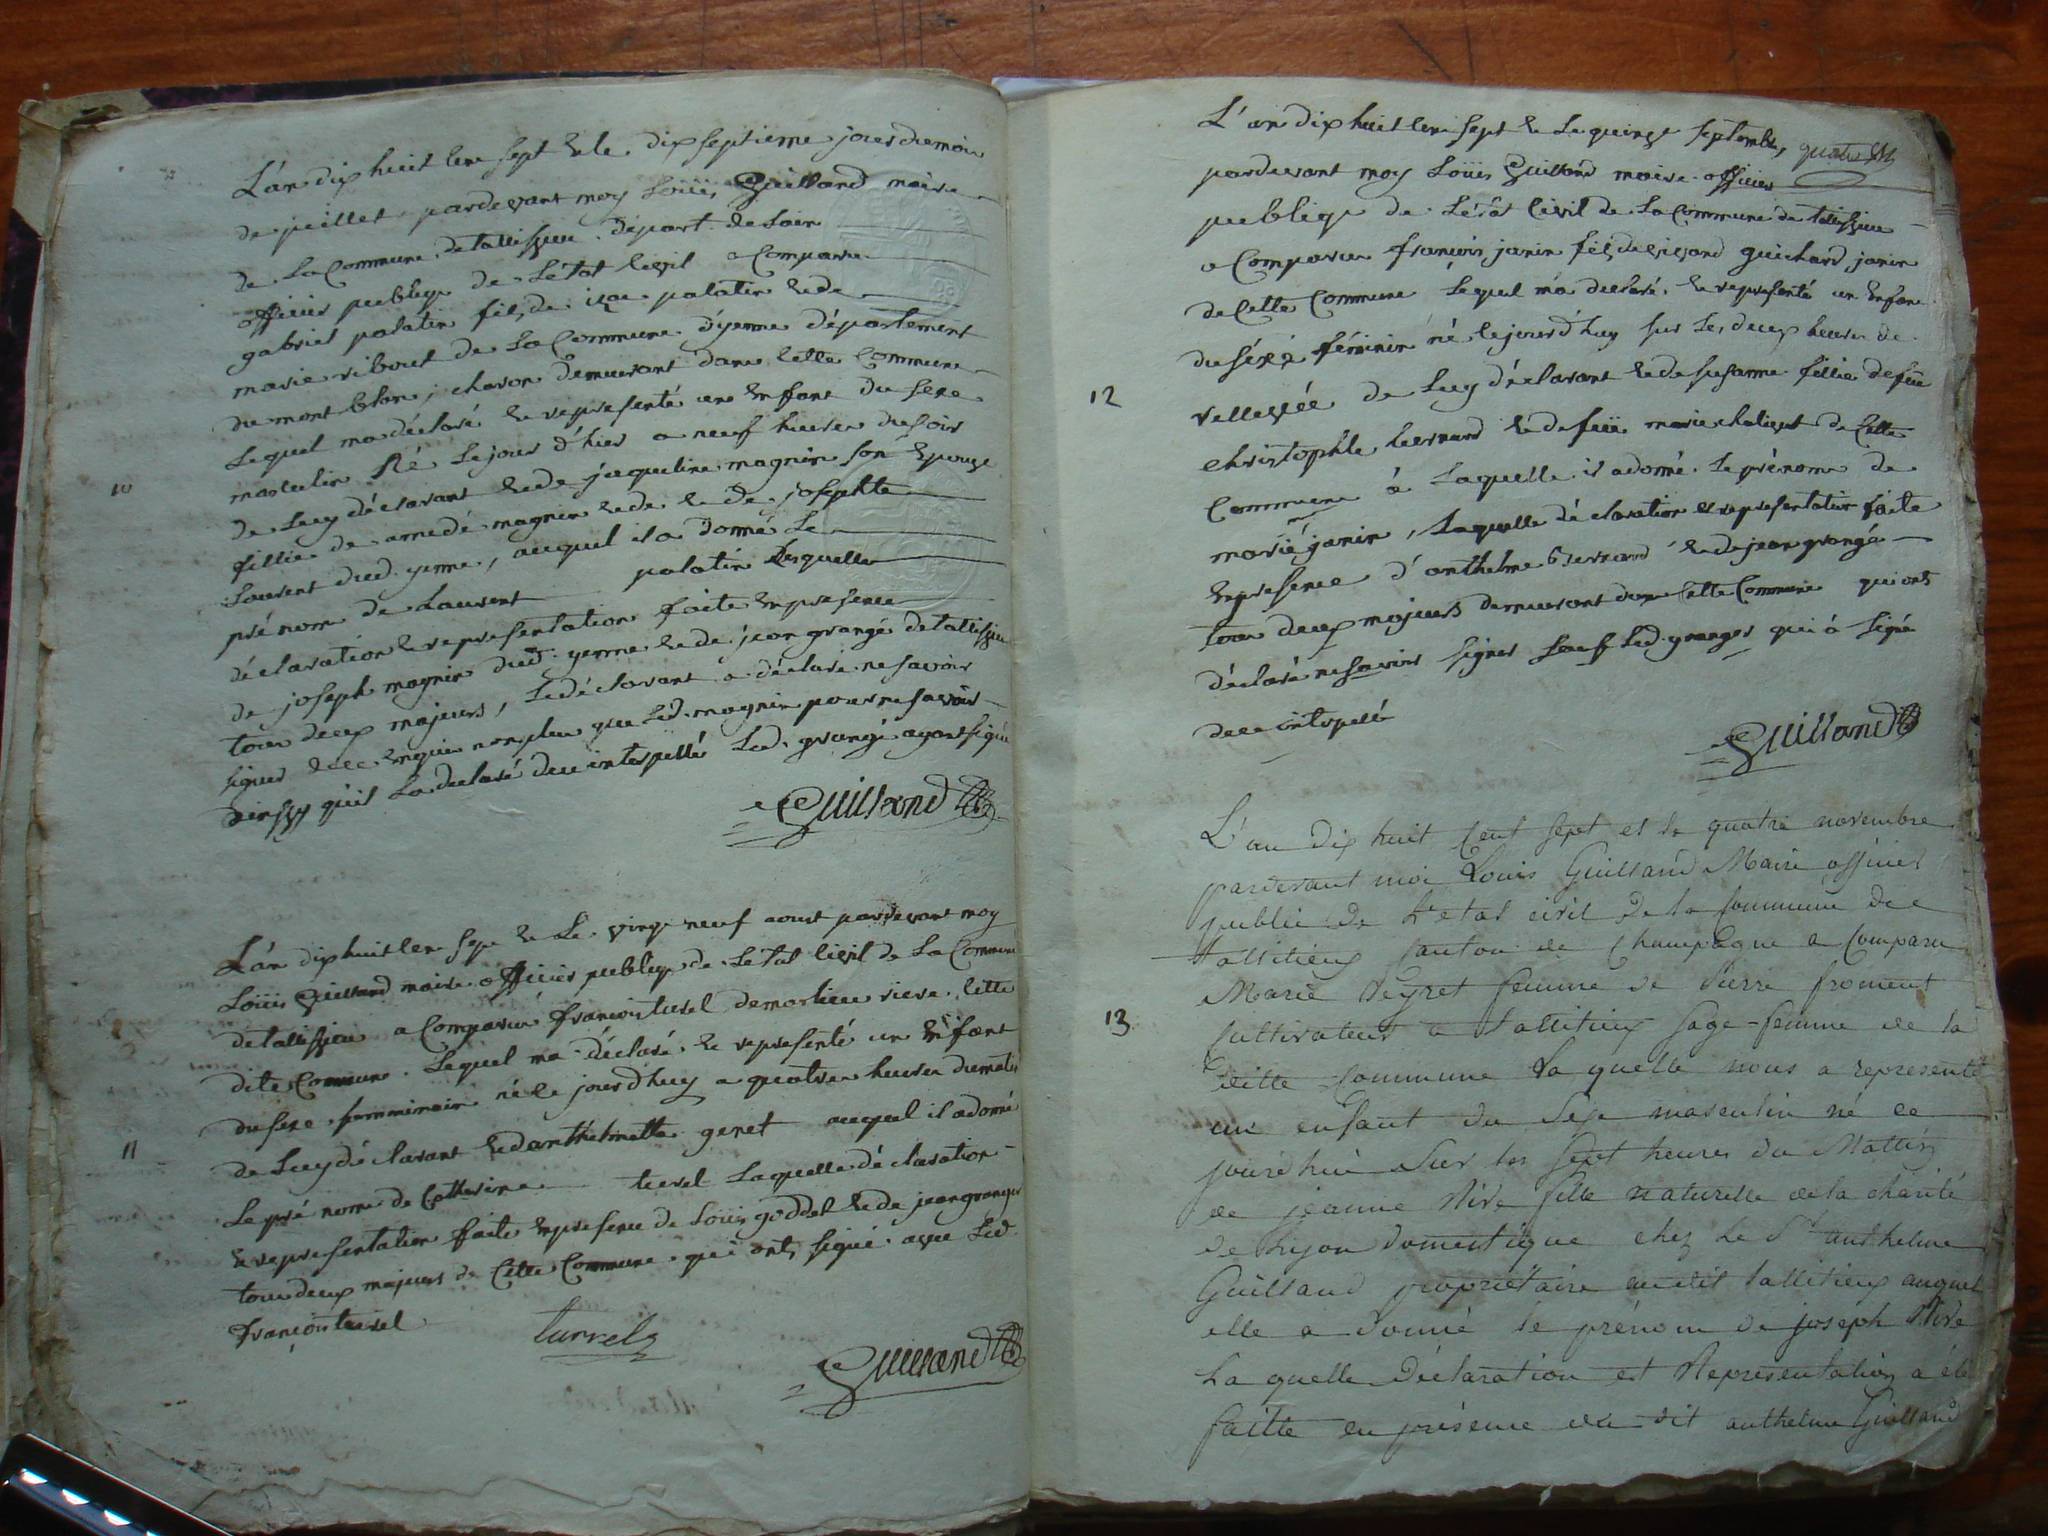 L'an dix huit cent sept & le dix septieme jour du mois
de juillet pardevant moy Loüis Guilland maire
de La Commune de tallissieu départ. de Lain
officier publiqe de Létat Civil a Comparu
gabriel palatin fils de isac palatin & de
marie ribout de La Commune d'yenne département
du mont blan, charon demeurant dans Cette Commune
Lequel ma déclaré & representé un Enfant du sexe
masculin Né Le jour d'hier a neuf heures du soir
10
de Luy déclarant & de jaqueline magnin son Epouze
fillie de amedé magnin & de josephte
Laurent dud. yenne, auquel il a donné Le
pré nom de Laurent palatin Lesquelle
déclaration & representation faite En presence
de joseph magnin dud. yenne & de jean grangé de tallissieu
tous deux majeurs, Le déclarant a déclaré ne savoir
signer non plus que Led. magnin pour ne savoir
qu'il La déclaré interpellé Led. grangé ayant signé
Guilland
L'an dix huit Cen Sept & Le vingt neuf aoust pardevant moy
Loüis Guilland maire officier publiqe de Létat Civil de La Commune
de tallissieu a Comparu françois turel de Cette
dite Commune. Lequel ma déclaré & representé un Enfant
du sexe femminain né le jourd'huy a quatre heures du matin
11
de Luy déclarant & danthelmette genet auquel il a donné
Le pré nome de Catherine turel Laquelle déclaration
& representation faite En presence de Loüis goddet & de jean granger
tous deux majeurs de Cette Commune qui onts signé avec Led.
françois turel
turrel
Guilland
L'an dix huit Cen sept & Le quinze septembre, quatre
pardevant moy Loüis Guilland maire officier
publiqe de Létat Civil de La Commune de tallissieu
a Comparu françois janin fils de guichard janin
de Cette Commune Lequel ma déclaré & representé un Enfant
du séxe féminin né Cejourd'huy sur Les deux heures de
12
relevée de Luy déclarant & de susanne fillie de feu
christophle bernard & de feüe marie de Cette
Commune á Laquelle il a donné Le prénom de
marie janin, Laquelle déclaration & representation faite
En presence d'anthelme Bernard & de jean grangé
tous deux majeurs demeurant dans Cette Commune qui onts
déclaré ne savoir signer sauf Led. granger qui á signé
de ce interpellé
Guilland
L'an dix huit Cent sept et le quatre novembre
pardevant moi Louis Guilland Maire officier
public de L'etat civil de la Commune de
tallitieux Canton de Champagne a Comparu
Marie Peyret femme de Pierre froment
13
Cultivateur a tallitieux sage-femme de la
ditte Commune La quelle nous a representé
un enfant du sexe masculin né ce
jourd'hui Sur les sept heures du Mattin
de jeanne Nive fille naturelle de la charité
de Lyon domestique chez Le Sr anthelme
Guilland propriétaire audit tallitieux auquel
elle a donné le prénom de joseph Nive
La quelle Déclaration et Représentation a été
faitte en présence du dit anthelme Guilland